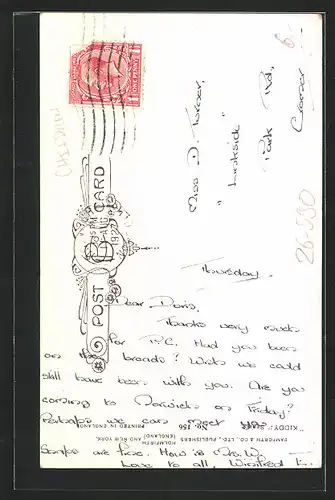 Miss D. Turner,
"Lookside"
Park Rd,
Cromer
POST CARD
ONE PENNY
Thursday.
Dear Doris,
Thanks very much
for P.C. Had you been
on the broads? Wish we could
still have been with you. Are you
coming to Norwich on Friday?
Perhaps we can meet
Snaps are fine. How is
Love to all, Winifred
"KIDDY" No. 156
PRINTED IN ENGLAND
BAMFORTH & CO LTD., PUBLISHERS
HOLMFIRTH
(ENGLAND) AND NEW YORK.